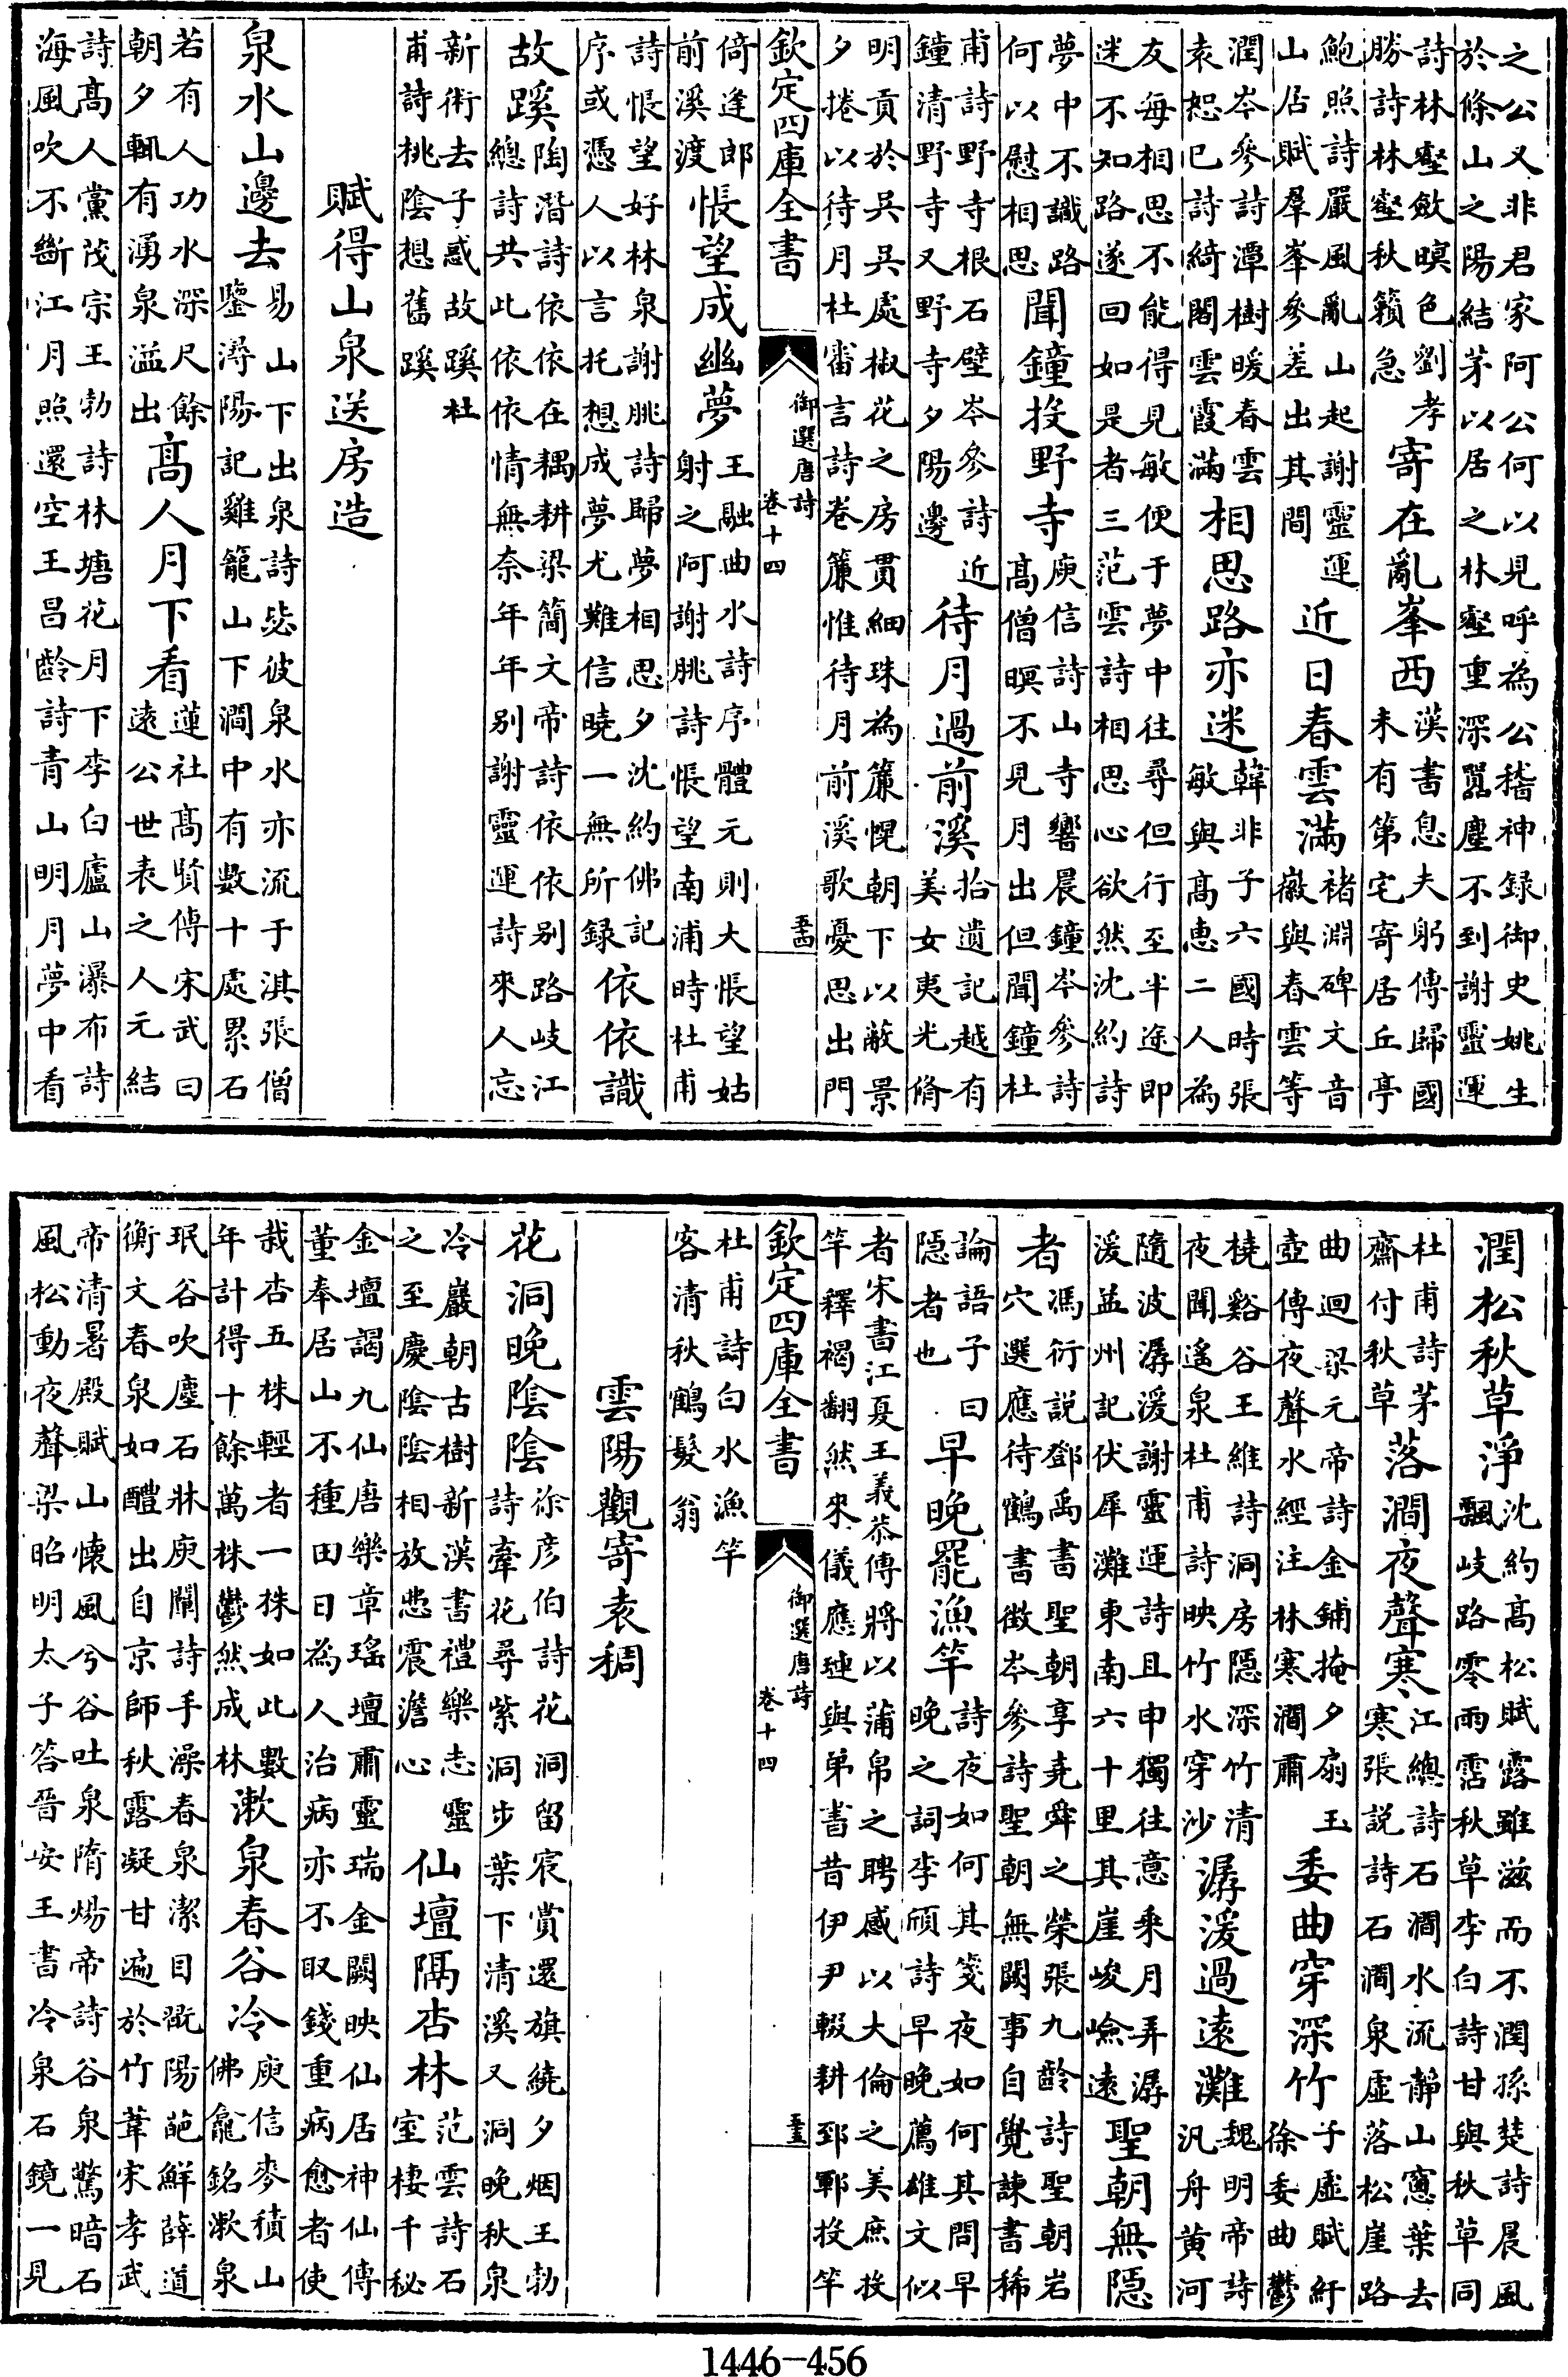 之公义非君家阿公何以見呼為公稽神録御史姚生
於條山之陽結茅以居之林壑重深囂塵不到謝靈運
詩林壑斂暝色劉孝
勝詩林壑秋籟急
寄在亂峯西
漢書息夫躬傳歸國
未有第宅寄居丘亭
鮑照詩嚴風亂山起謝靈運
山居賦羣峯參差出其間
近日春雲滿
褚淵碑文音
徽與春雲等
潤岑參詩潭樹暖春雲
袁恕已詩綺閣雲霞滿
相思路亦迷
韓非子六國時張
敏與高惠二人為
友每相思不能得見敏便于夢中往尋但行至半途即
迷不知路遂回如是者三范雲詩相思心欲然沈約詩
夢中不識路
何以慰相思
聞鐘投野寺
庾信詩山寺響晨鐘岑參詩
高僧暝不見月出但聞鐘杜
甫詩野寺根石壁岑參詩近
鐘清野寺又野寺夕陽邊
待月過前溪
拾遺記越有
美女夷光脩
明貢於吳吳處椒花之房貫細珠為簾幌朝下以蔽景
夕捲以待月杜審言詩卷簾惟待月前溪歌憂思出門
欽定四庫全書
御選唐詩
卷十四
五四
倚逢郎
前溪渡
悵望成幽夢
王融曲水詩序體元則大悵望姑
射之阿謝朓詩悵望南浦時杜甫
詩悵望好林泉謝朓詩歸夢相思夕沈約佛記
序或憑人以言托想成夢尤難信曉一無所録
依依識
故蹊
陶潛詩依依在耦耕梁簡文帝詩依依别路岐江
總詩共此依依情無奈年年别謝靈運詩來人忘
新術去子惑故蹊杜
甫詩桃陰想舊蹊
賦得山泉送房造
泉水山邊去
易山下出泉詩毖彼泉水亦流于淇張僧
鑒潯陽記雞籠山下澗中有數十處累石
若有人功水深尺餘
朝夕輒有湧泉溢出
高人月下看
蓮社高賢傳宋武曰
遠公世表之人元結
詩高人黨茂宗王勃詩林塘花月下李白廬山瀑布詩
海風吹不斷江月照還空王昌齡詩青山明月夢中看
潤松秋草淨
沈約高松賦露雖滋而不潤孫楚詩晨風
飄岐路零雨霑秋草李白詩甘與秋草同
杜甫詩茅
齋付秋草
落澗夜聲寒
江總詩石澗水流靜山窻葉去
寒張説詩石澗泉虛落松崖路
曲迴梁元帝詩金鋪掩夕扇玉
壺傳夜聲水經注林寒澗肅
委曲穿深竹
子虛賦紆
徐委曲鬱
橈谿谷王維詩洞房隱深竹清
夜聞遥泉杜甫詩映竹水穿沙
潺湲過遠灘
魏明帝詩
汎舟黄河
隨波潺湲謝靈運詩且申獨往意乘月弄潺
湲益州記伏犀灘東南六十里其崖峻嶮遠
聖朝無隱
者
馮衍説鄧禹書聖朝享堯舜之榮張九齡詩聖朝岩
穴選應待鶴書徴岑參詩聖朝無闕事自覺諫書稀
論語子曰
隠者也
早晚罷漁竿
詩夜如何其箋夜如何其問早
晚之詞李頎詩早晚薦雄文似
者宋書江夏王義恭傳將以蒲帛之聘感以大倫之美庶投
竿釋褐翻然來儀應璩與弟書昔伊尹輟耕郅鄆投竿
欽定四庫全書
御選唐詩
卷十四
五五
杜甫詩白水漁竿
客清秋鶴髮翁
雲陽觀寄袁稠
花洞晚陰陰
徐彦伯詩花洞留宸賞還旗繞夕烟王勃
詩牽花尋紫洞步葉下清溪又洞晚秋泉
冷巖朝古樹新漢書禮樂志靈
之至慶陰陰相放悲震澹心
仙壇隔杏林
范雲詩石
室棲千秘
金壇謁九仙唐樂章瑤壇肅靈瑞金闕映仙居神仙傳
董奉居山不種田日為人治病亦不取錢重病愈者使
栽杏五株輕者一株如此數
年計得十餘萬株鬱然成林
漱泉春谷冷
庾信麥積山
佛龕銘漱泉
珉谷吹塵石牀庾闡詩手澡春泉潔目翫陽葩鮮薛道
衡文春泉如醴出自京師秋露凝甘遍於竹葦宋孝武
帝清暑殿賦山懷風兮谷吐泉隋煬帝詩谷泉驚暗石
風松動夜聲梁昭明太子答晉安王書冷泉石鏡一見
1446-456